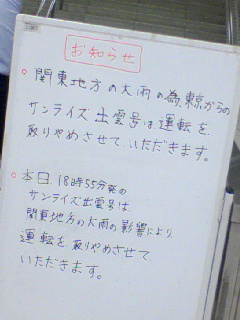 お知らせ
○関東地方の大雨の為、東京からの
サンライズ出雲号は運転を
取りやめさせていただきます。
○本日、18時55分発の
サンライズ出雲号は
関東地方の大雨の影響により
運転を取りやめさせて
いただきます。